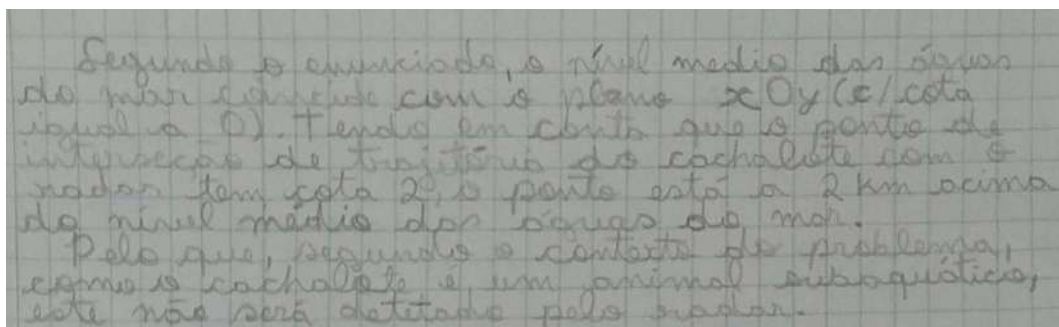 Segundo o enunciado, o nível medio das águas
do mar coincide com o plano xOy (c/ cota
igual a 0). Tendo em conta que o ponto de
interseção de trajetória do cachalote com o
radar tem cota 2, o ponto está a 2 km acima
do nível médio das águas do mar.
Pelo que, segundo o contexto do problema,
como o cachalote é um animal subaquático,
este não será detetado pelo radar.